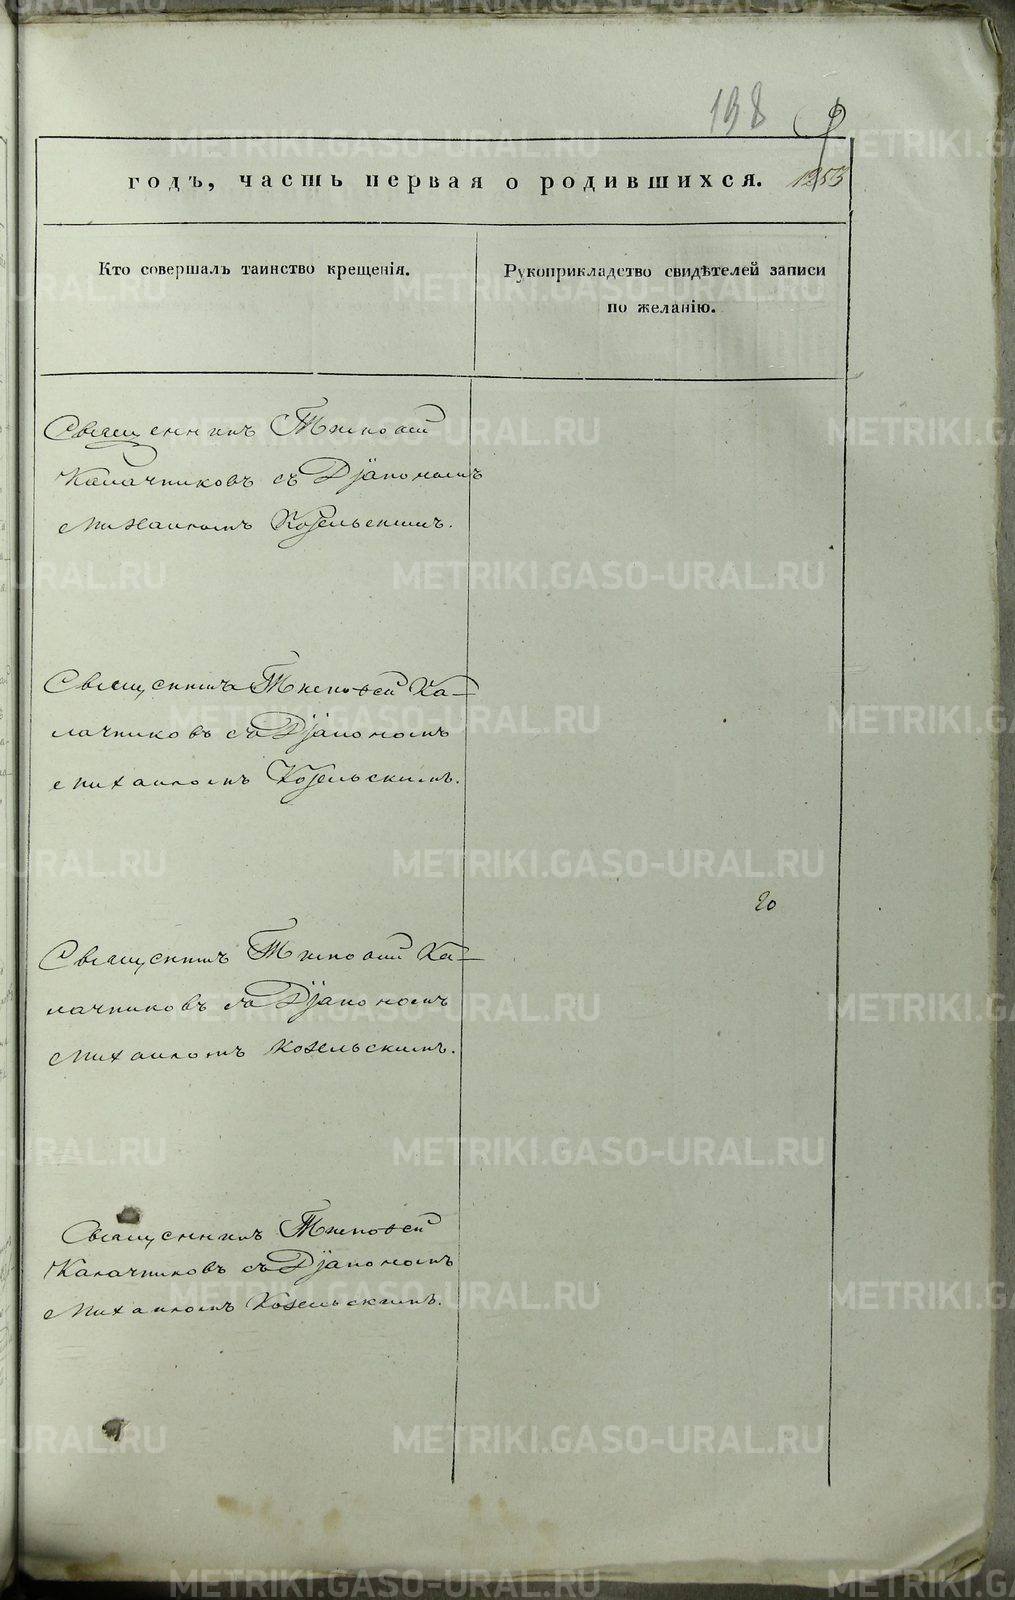 198
годъ, часть первая о родившихся. 1253
Кто совершалъ таинство крещенія.
Рукоприкладство свидѣтелей записи
по желанію.
Священникъ Тимофей
Калачниковъ съ Діакономъ
Михаиломъ Козельскимъ.
Священникъ Тимофей Ка-
лачниковъ съ Діакономъ
Михаиломъ Козельскимъ.
20
Священникъ Тимофей Ка-
лачниковъ съ Діакономъ
Михаиломъ Козельскимъ.
Священникъ Тимофей
Калачниковъ съ Діакономъ
Михаиломъ Козельскимъ.
METRIKI.GASO-URAL.RU